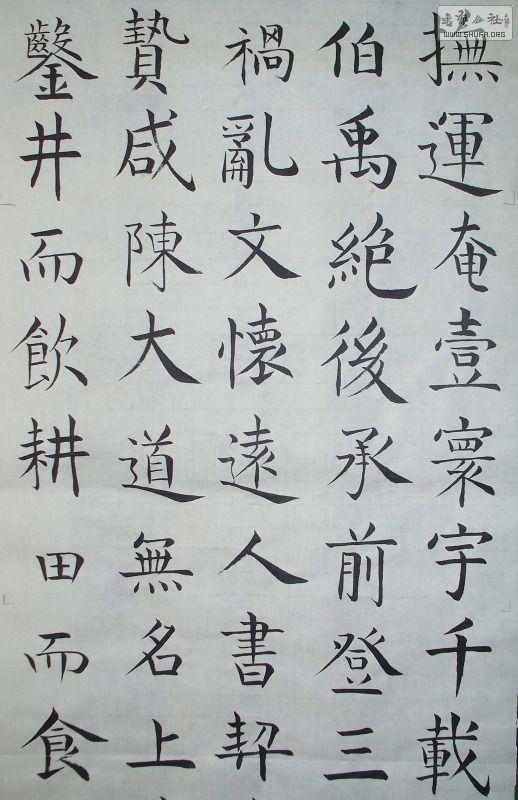 撫運奄壹寰宇千載
伯禹絕後承前登三
禍亂文懷遠人書契
贄咸陳大道無名上
鑿井而飲耕田而食
公社
WWW.SHUFA.ORG